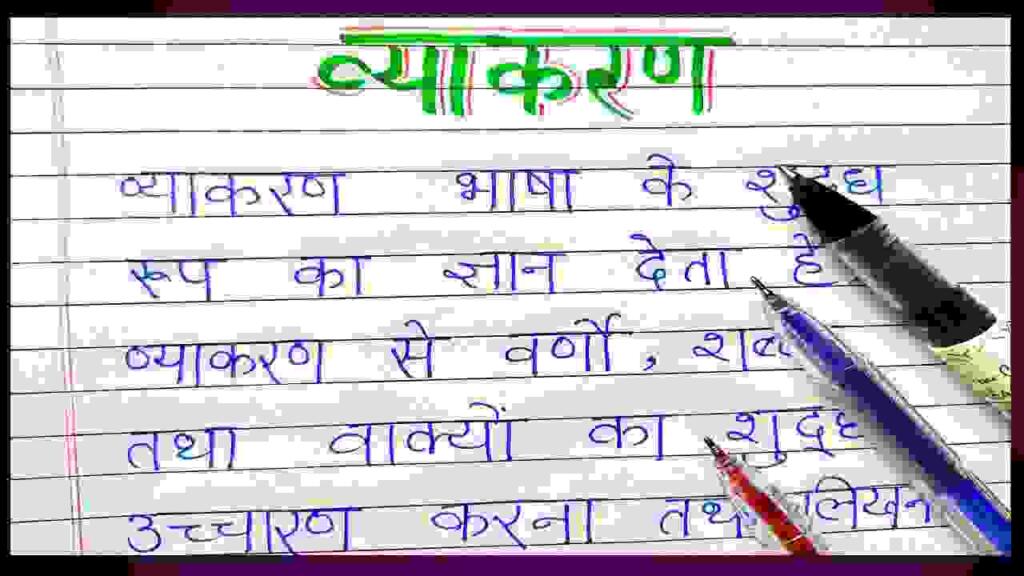 व्याकरण
व्याकरण भाषा के शुद्ध
रूप का ज्ञान देता है
व्याकरण से वर्णों,
तथा वाक्यों का शुद्ध
उच्चारण करना